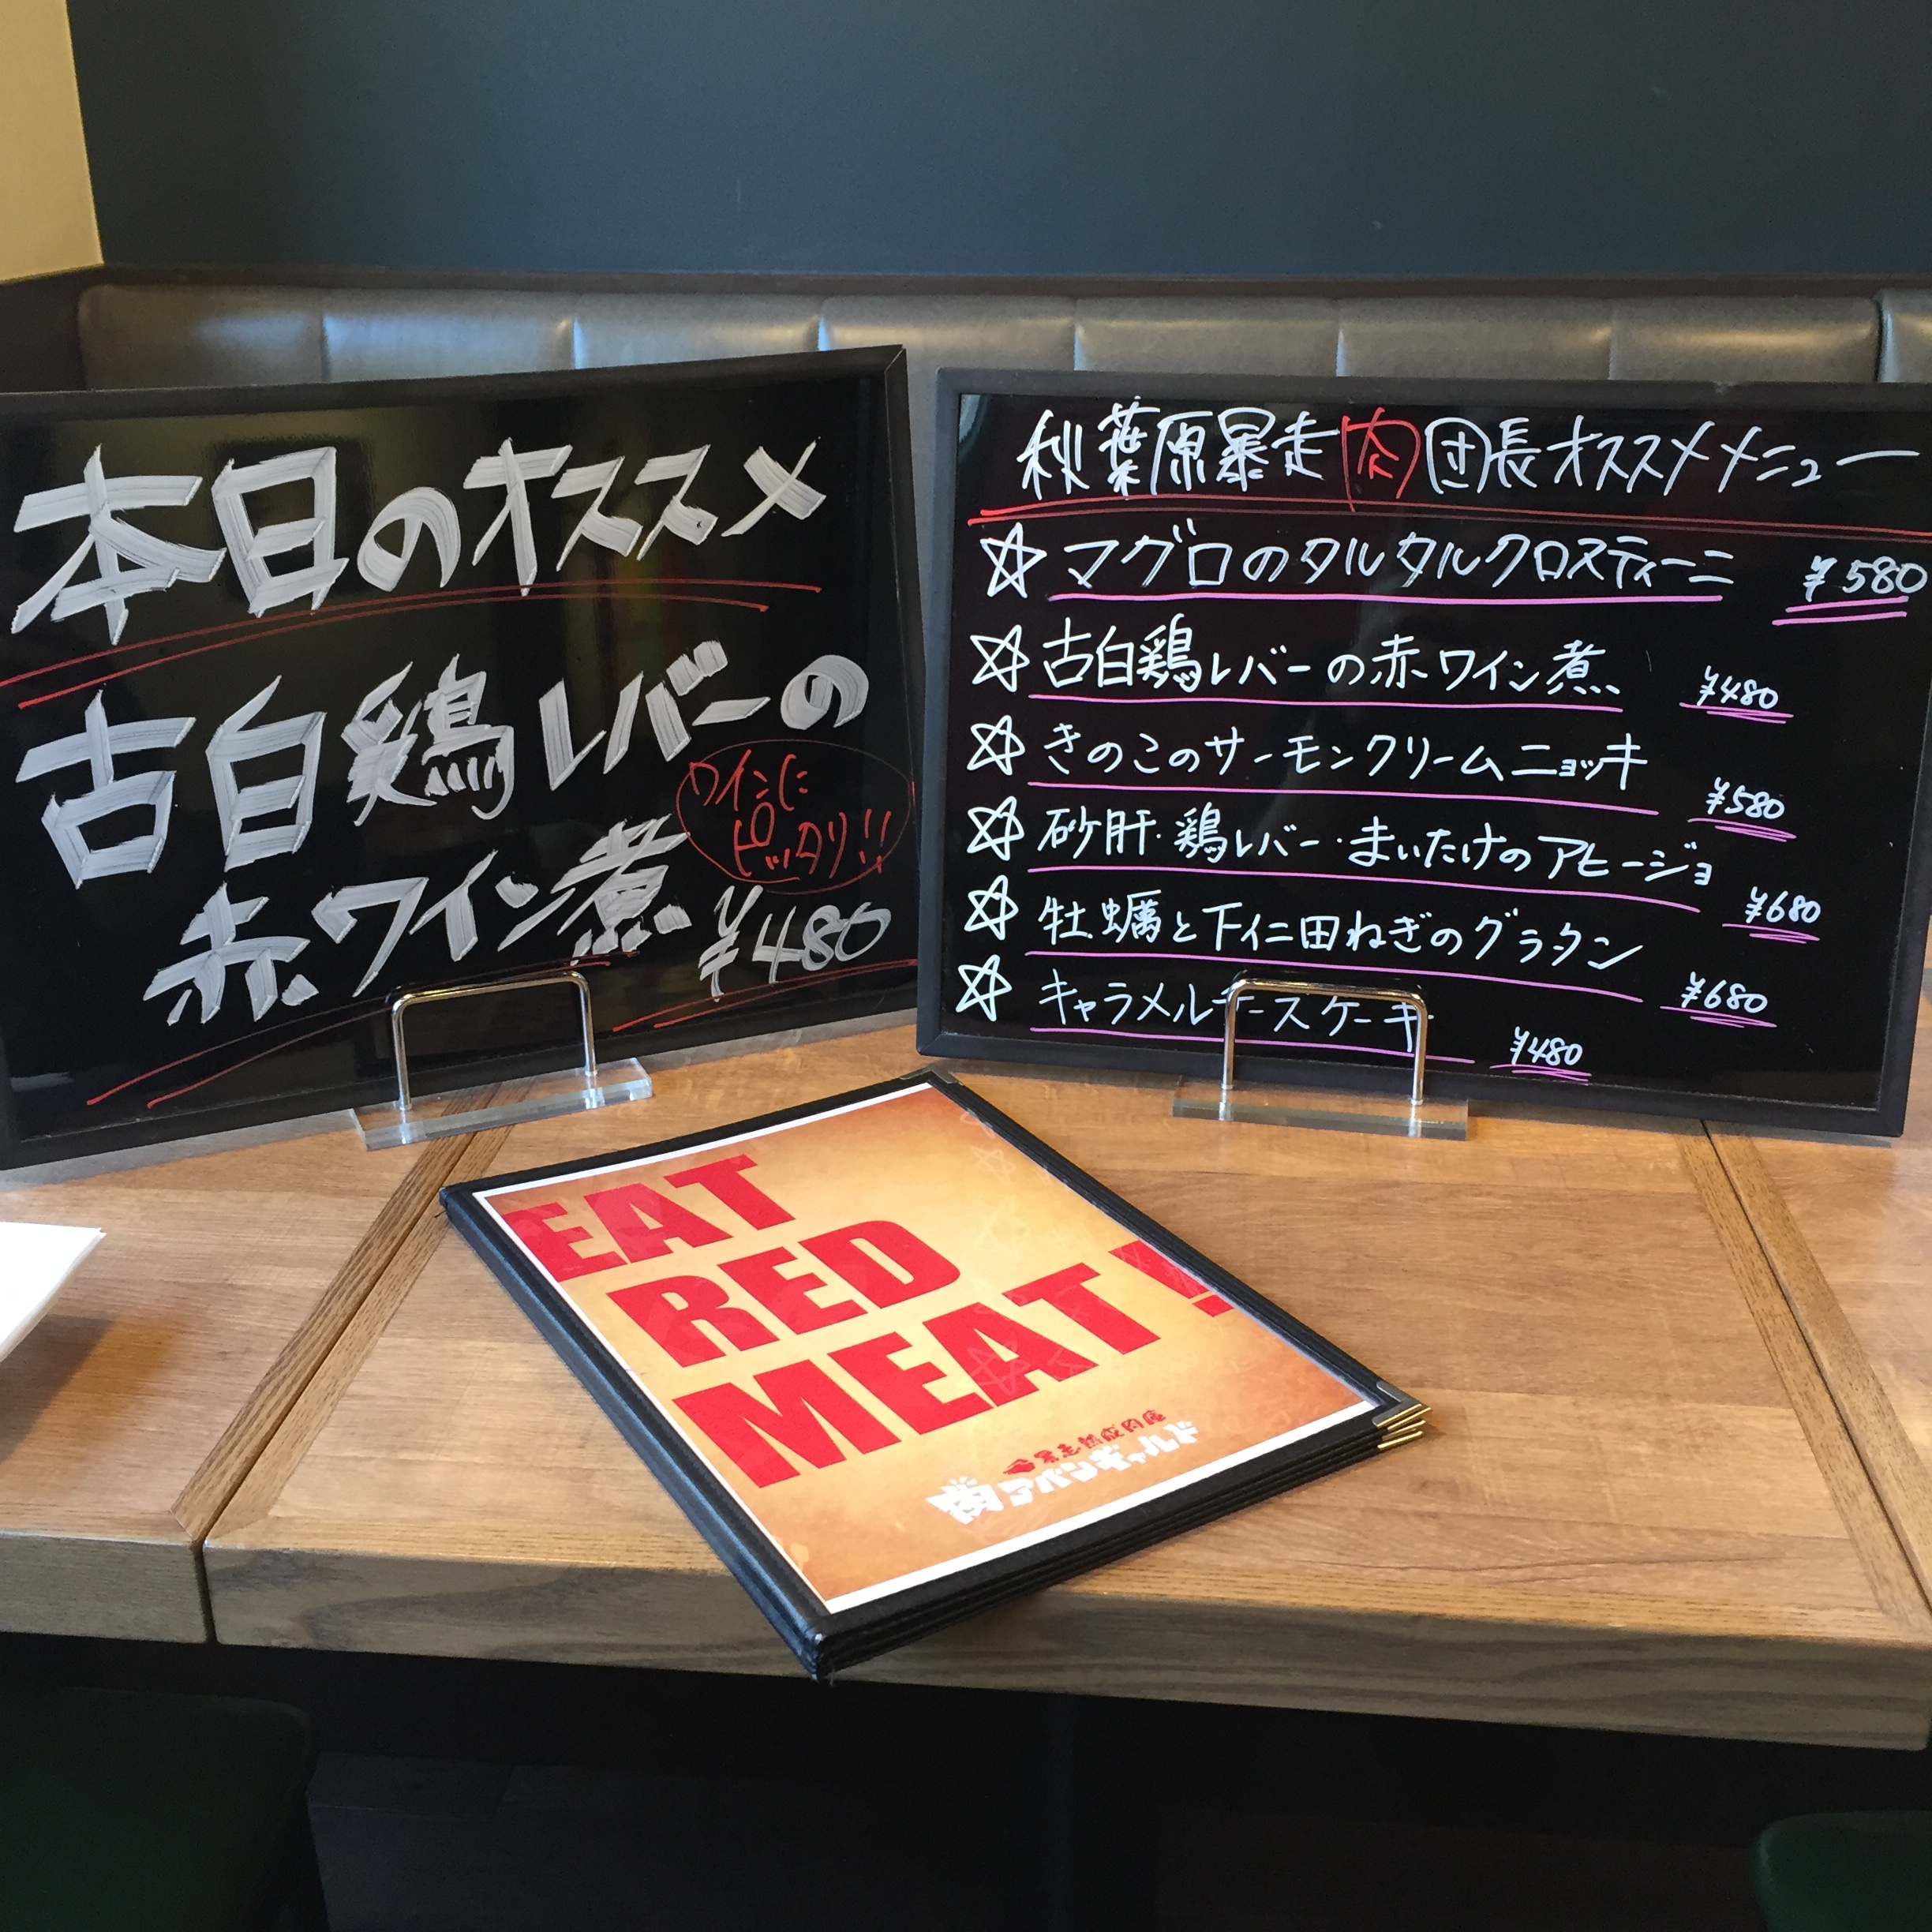 本日のオススメ
古白鶏レバーの
赤ワイン煮
ワインに
ピッタリ!!
¥480
秋葉原暴走肉団長オススメメニュー
☆マグロのタルタルクロスティーニ ¥580
☆古白鶏レバーの赤ワイン煮 ¥480
☆きのこのサーモンクリームニョッキ ¥580
☆砂肝・鶏レバー・まいたけのアヒージョ ¥680
☆牡蠣と下仁田ねぎのグラタン ¥680
☆キャラメルチーズケーキ ¥480
EAT
RED
MEAT!
暴走熟成肉
アバンギャルド